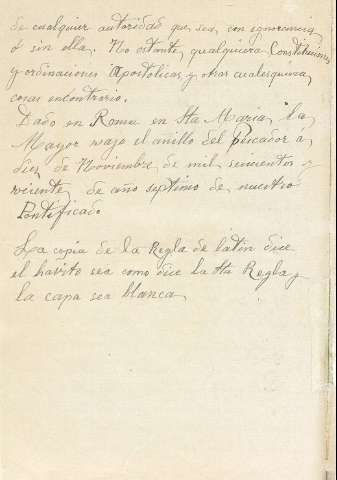 de cualquier autoridad que sea, con ignorancia
ó sin ella. No ostante, qualquiera Constituciones
y ordinaciones Apostolicas, y otras cualesquiera,
cosas encontrario.
Dado en Roma en Sta Maria, la
Mayor vajo el anillo del Pescador á,
diez, de Noviembre de mil, y
veinte, de año septimo de nuestro
Pontificado
La copia de la Regla de latin dice
el havito sea como dice la Sta Regla y
la capa sea blanca,